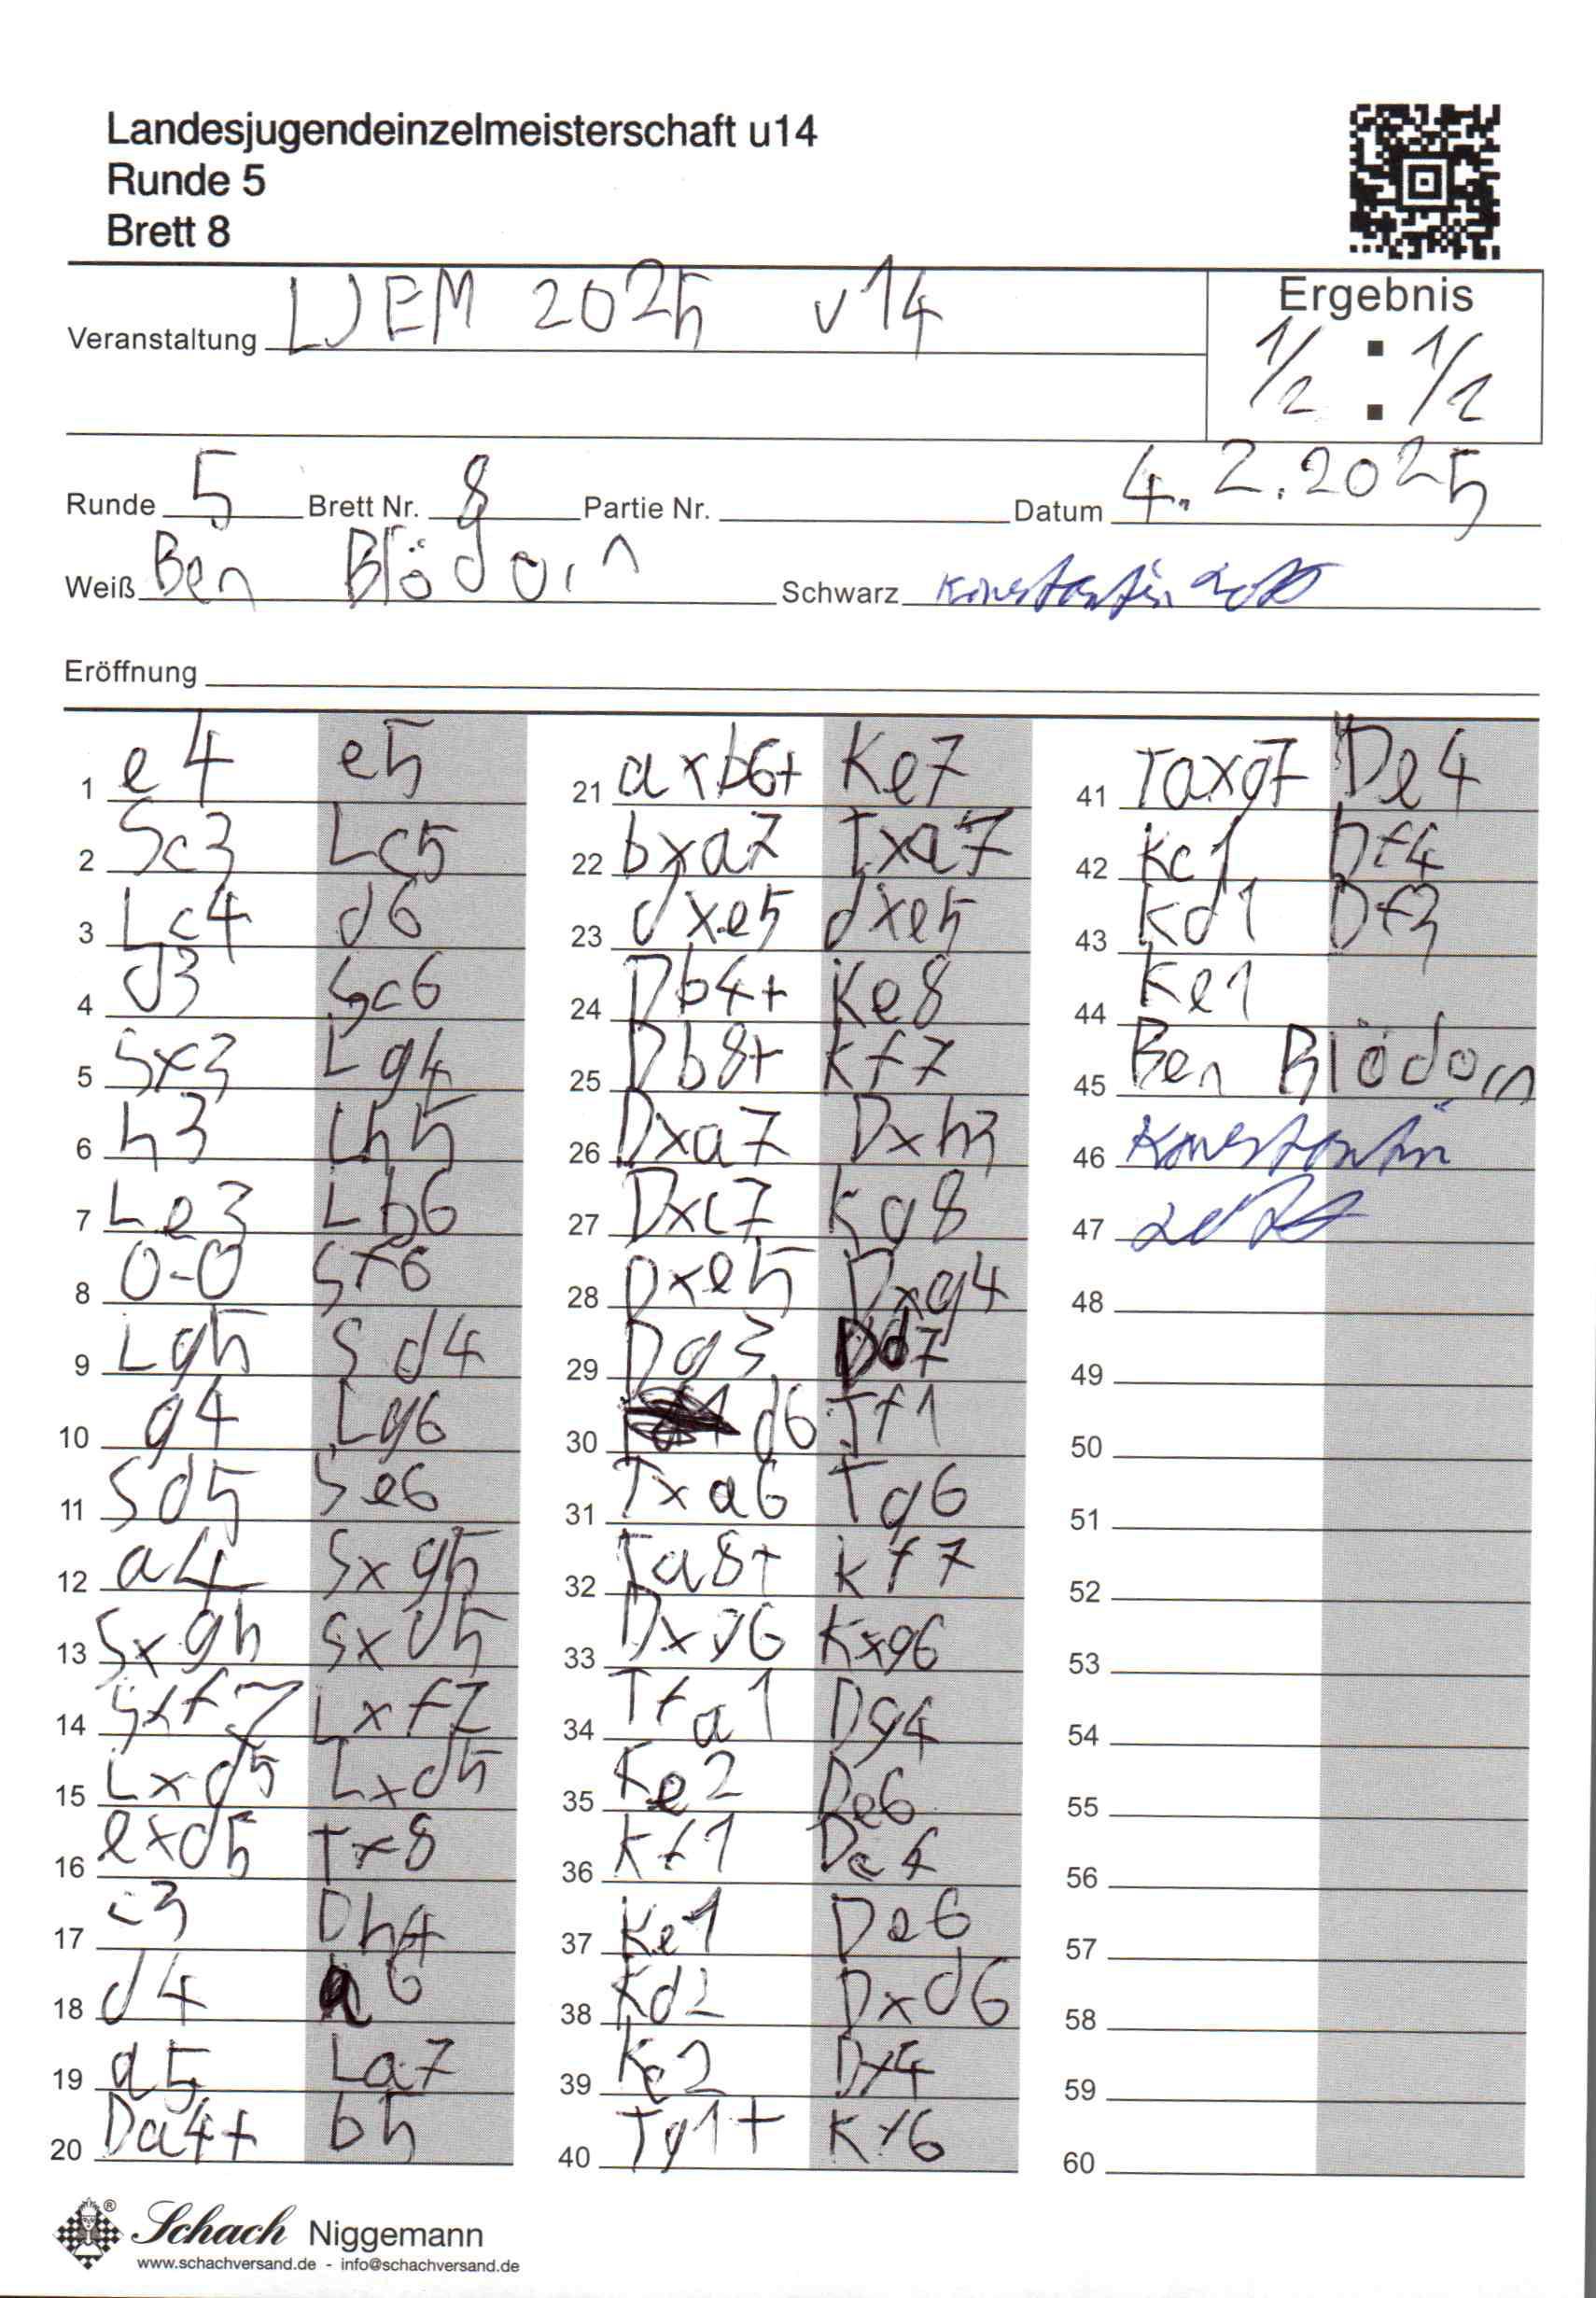 Landesjugendeinzelmeisterschaft u14
Runde 5
Brett 8
Veranstaltung LJEM 2025 u14
Ergebnis
1/2 : 1/2
Runde 5 Brett Nr. 8 Partie Nr. Datum 4.2.2025
Weiß Ben Blödorn Schwarz Konstantin
Eröffnung
1 e4 e5
2 Sc3 Lc5
3 Lc4 d6
4 d3 Sc6
5 Sf3 Lg4
6 h3 Lh5
7 Le3 Lb6
8 0-0 Sf6
9 Lg5 Sd4
10 g4 Lg6
11 Sd5 Se6
12 a4 Sxg5
13 Sxg5 Sxd5
14 Sxf7 Lxf7
15 Lxd5 Lxd5
16 exd5 Tf8
17 c3 Dh4
18 d4 a6
19 a5 La7
20 Da4+ b5
21 axb6+ Ke7
22 bxa7 Txa7
23 dxe5 dxe5
24 Db4+ Ke8
25 Db8+ Kf7
26 Dxa7 Dxh3
27 Dxc7 Kg8
28 Dxe5 Dxg4
29 Dg3 Dd7
30 d6 Tf1
31 Txa6 Tg6
32 Ta8+ Kf7
33 Dxg6 Kxg6
34 Tfa1 Dg4
35 Ke2 De6
36 Kf1 Dc4
37 Ke1 De6
38 Kd2 Dxd6
39 Kc2 Df4
40 Tg1+ Kf6
41 Taxg7 De4
42 Kc1 Df4
43 Kd1 Df3
44 Ke1
45 Ben Blödorn
46 Konstantin
47
48
49
50
51
52
53
54
55
56
57
58
59
60
Schach Niggemann
www.schachversand.de - info@schachversand.de